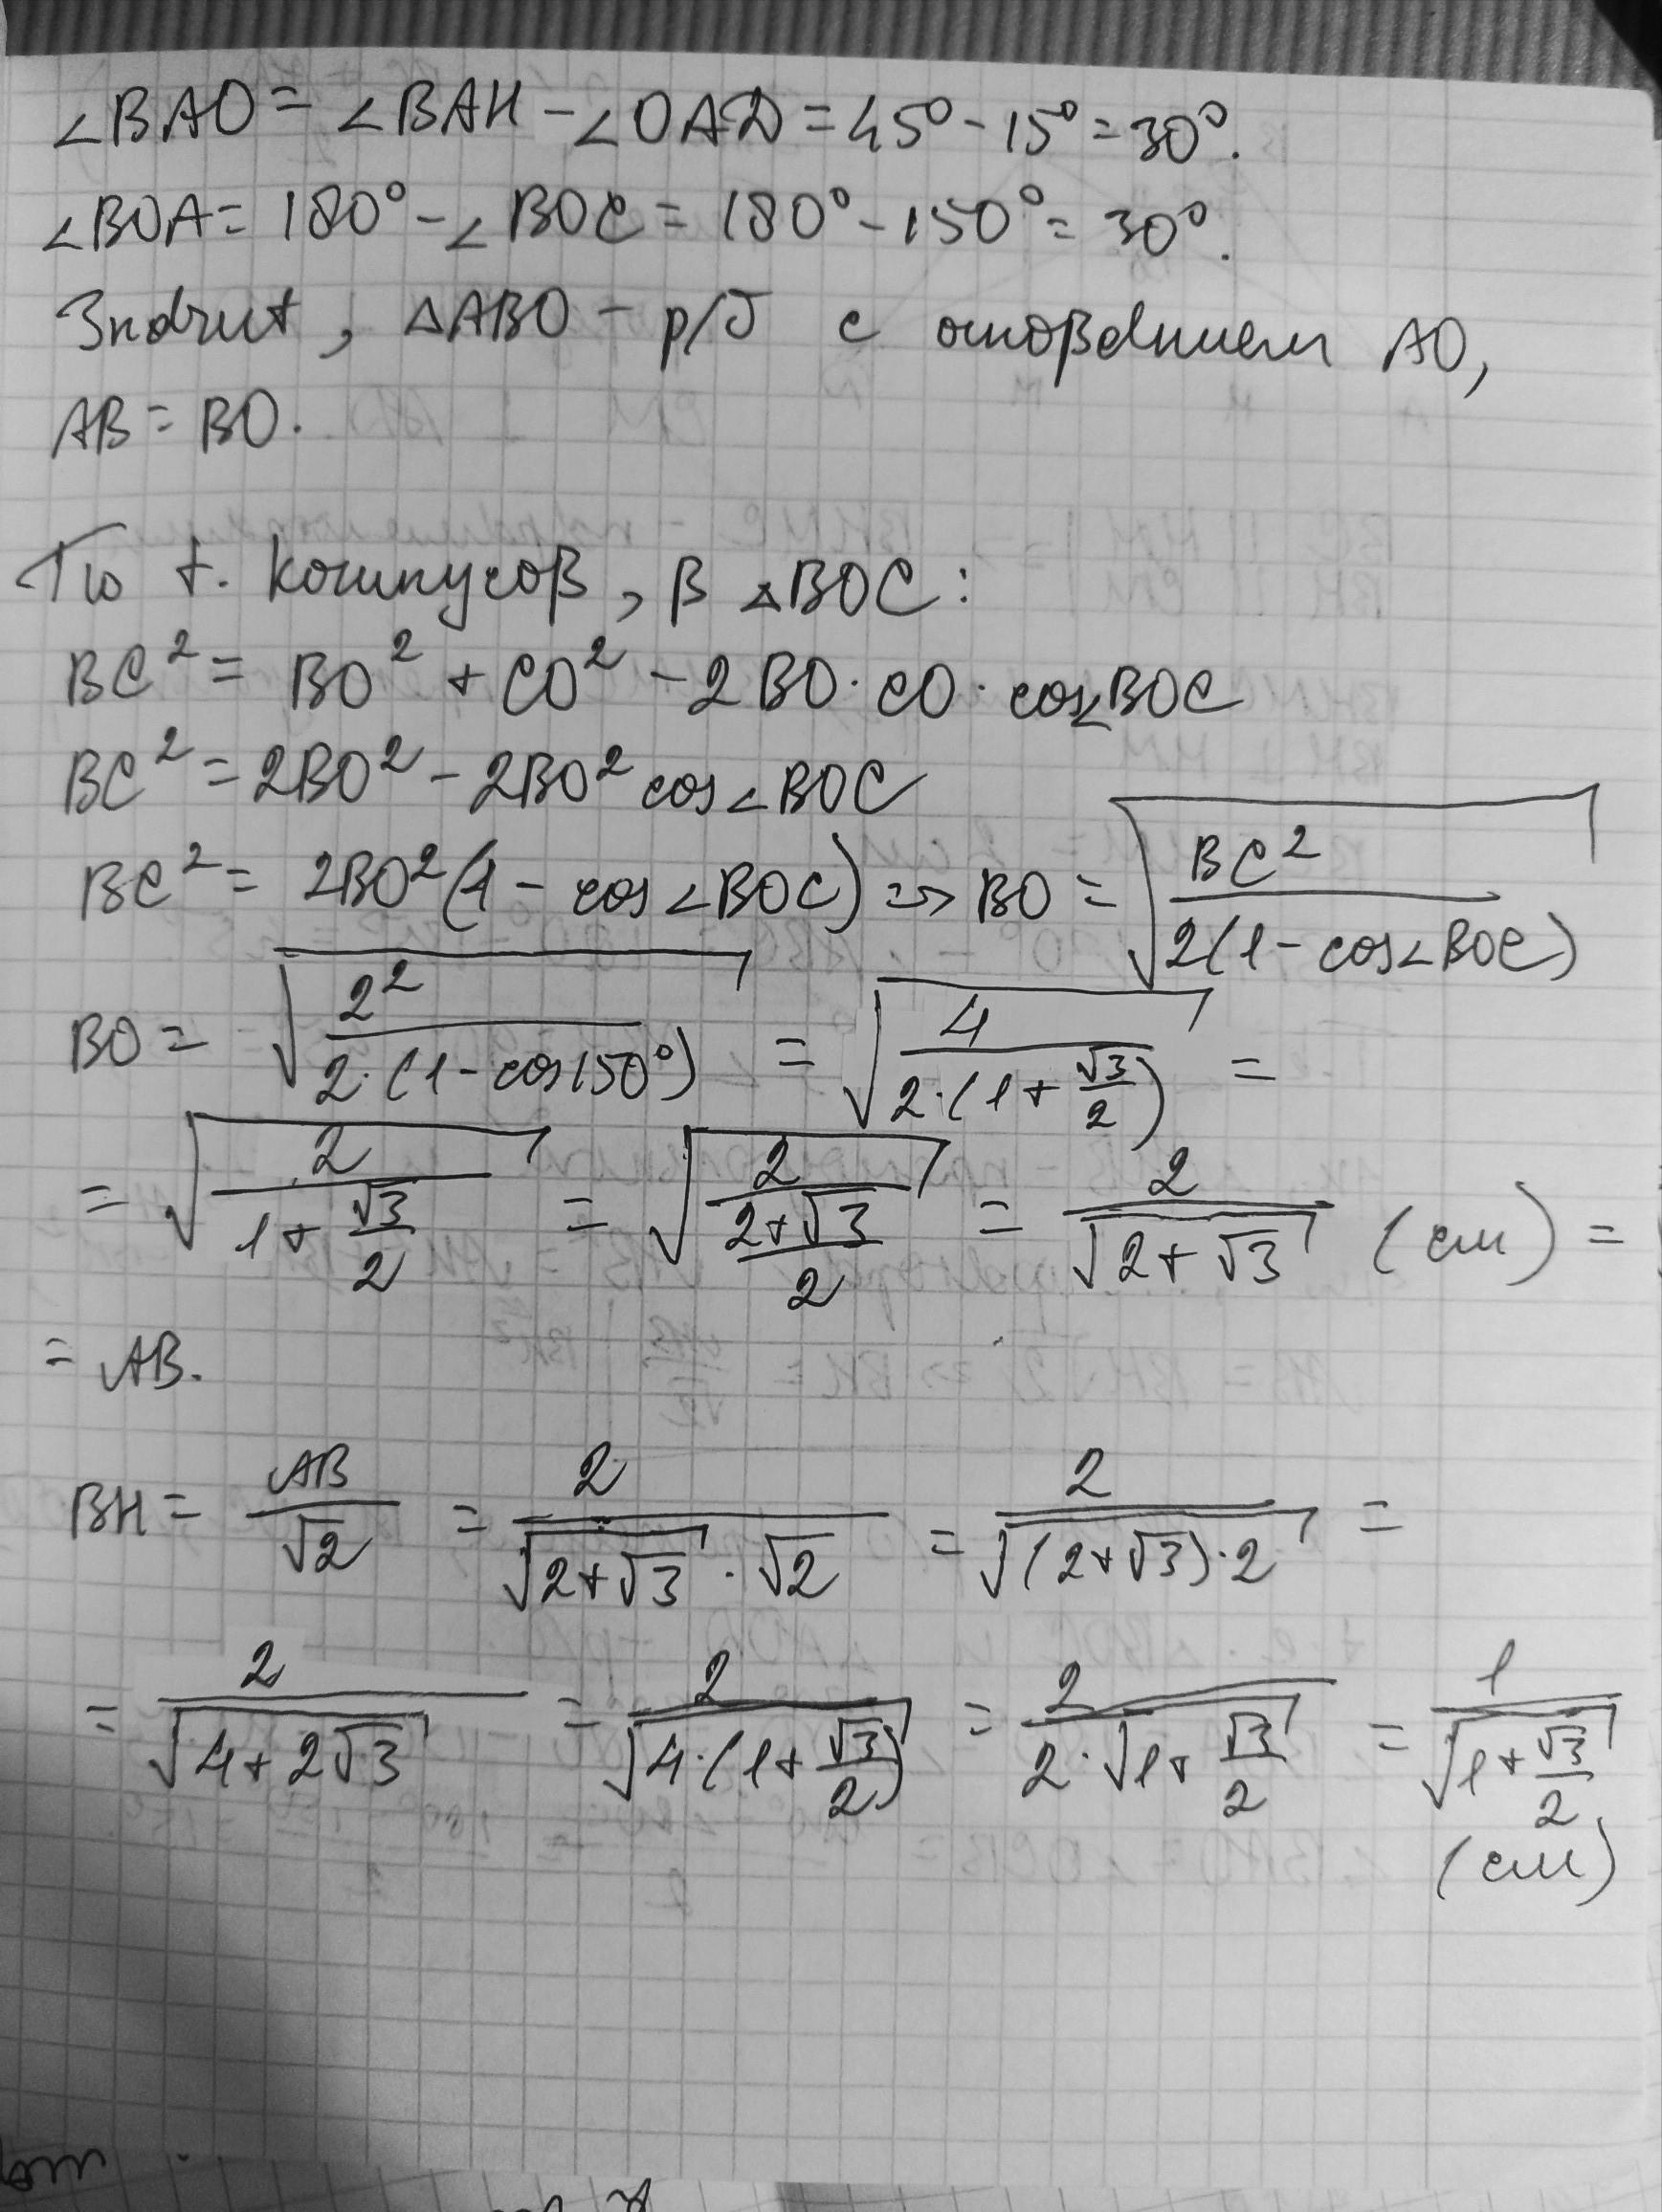 ∠BAO = ∠BAH - ∠OAD = 45° - 15° = 30°.
∠BOA = 180° - ∠BOC = 180° - 150° = 30°.
Значит, △ABO - р/б с основанием AO,
AB = BO.
По т. косинусов, в △BOC:
BC² = BO² + CO² - 2BO·CO·cos∠BOC
BC² = 2BO² - 2BO² cos∠BOC
BC² = 2BO²(1 - cos∠BOC) => BO = √(BC²/(2(1 - cos∠BOC)))
BO = √(2²/(2·(1 - cos150°))) = √(4/(2·(1 + √3/2))) =
= √(2/(1 + √3/2)) = √(2/((2+√3)/2)) = 2/√(2+√3) (см) =
= AB.
BH = AB/√2 = 2/(√(2+√3)·√2) = 2/√((2+√3)·2) =
= 2/√(4+2√3) = 2/√(4·(1+√3/2)) = 2/(2·√(1+√3/2)) = 1/√(1+√3/2)
(см)